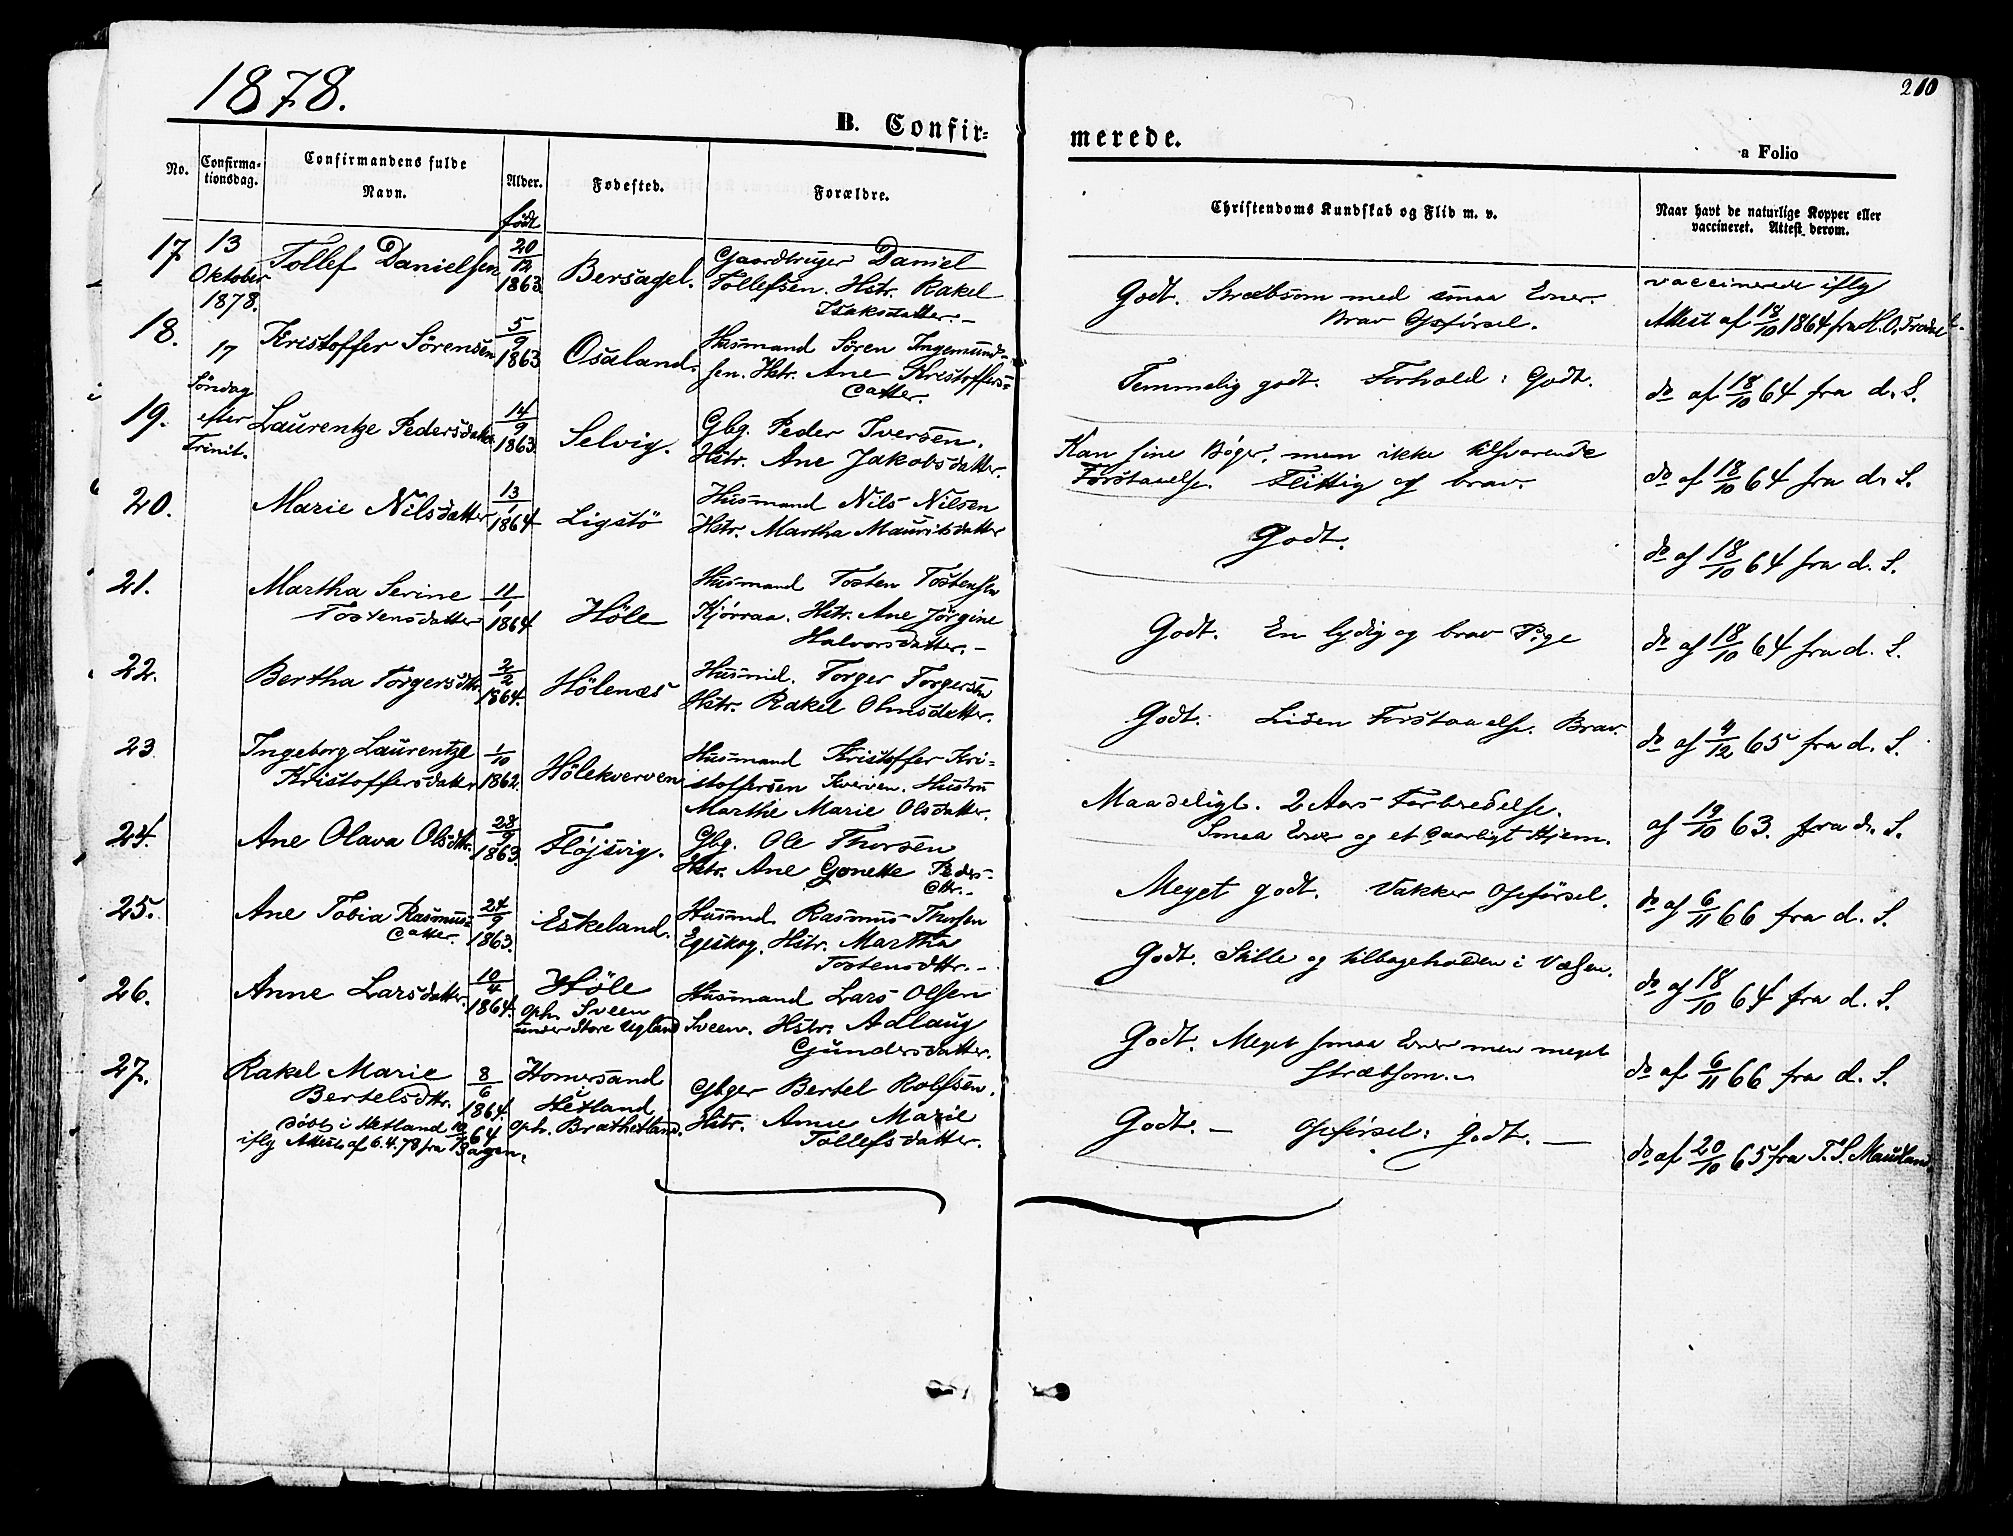 1878.
210
B. Confir-
merede.
a Folio
No.
Confirma-
tionsdag.
Confirmandens fulde
Navn.
Alder.
født
Fødested.
Forældre.
Christendoms Kundskab og Flid m. v.
Naar havt de naturlige Kopper eller
vaccineret. Attest derom.
17
13
Oktober
1878.
17
Søndag
efter
Trinit.
Tollef Danielsen
20/12
1863
Bersagel.
Gaardbruger Daniel
Tollefsen. Hstr. Rakel
Isaksdatter. –
Godt. Stræbsom med smaa Evner.
Brav Opførsel.
vaccinerede iflg
Attest af 18/10 1864 fra H. O.
18.
Kristoffer Sörensen
5/9
1863
Osaland.
Husmand Sören Ingemund-
sen. Hstr. Ane Kristoffers-
datter.
Temmelig godt. Forhold: Godt.
do af 18/10 64 fra d. S.
19.
Laurentze Pedersdatter
14/9
1863
Selvig.
Gbg. Peder Iversen.
Hstr. Ane Jakobsdatter.
Kan sine Bøger, men ikke tilsvarende
Forstaaelse. Flittig og brav.
do af 18/10 64 fra d. S.
20.
Marie Nilsdatter
13/1
1864
Ligstö
Husmand Nils Nilsen
Hstr. Martha Mauritsdatter
Godt.
do af 18/10 64 fra d. S.
21.
Martha Serine
Tostensdatter
11/1
1864
Höle
Husmand Tosten Tostensen
Kjörraa. Hstr. Ane Jörgine
Halvorsdatter. –
Godt. En lydig og brav Pige
do af 18/10 64 fra d. S.
22.
Bertha Torgersdtr.
2/2
1864.
Hölenæs
Husmd. Torger Torgersen
Hstr. Rakel Olsdatter.
Godt. Liden Forstaaelse. Brav.
do af 9/12 65 fra d. S.
23
Ingeborg Laurentze
Kristoffersdatter
1/10
1862.
Hölekverven
Husmand Kristoffer Kri-
stoffersen Kverven. Hustru
Marthe Marie Olsdatter.
Maadeligt. 2 Aars Forberedelse.
Smaa Evner og et daarligt Hjem.
af 19/10 63. fra d. S.
24.
Ane Olava Olsdtr.
28/9
1863.
Flöjsvig.
Gbg. Ole Thorsen
Hstr. Ane Gonette Peders-
dtr. –
Meget godt. Vakker Opförsel.
do af 6/11 66 fra d. S.
25.
Ane Tobia Rasmus-
datter.
24/9
1863.
Eskeland.
Husmd. Rasmus Thorsen
Egeskog. Hstr. Martha
Tostensdtr. –
Godt. Stille og tilbageholden i Væsen.
do af 18/10 64 fra d. S.
26.
Anne Larsdatter.
10/4
1864.
Höle
oph. Sveen
under Store Ugland
Husmand Lars Olsen
Sveen. Hstr. Adlaug
Gundersdatter.
Godt. Meget smaa Evner men meget
stræbsom.
do af 6/11 66 fra d. S.
27.
Rakel Marie
Bertelsdtr.
döbt i Hetland 10/7 64
iflg Attest af 6.4.78 fra
8/6
1864
Homersand
Hetland
oph. Brathetland.
Gbger Bertel Rolfsen.
Hstr. Anne Marie
Tollefsdatter.
Godt. – Opførsel: Godt. –
do af 20/10 65 fra T. S. Maudland